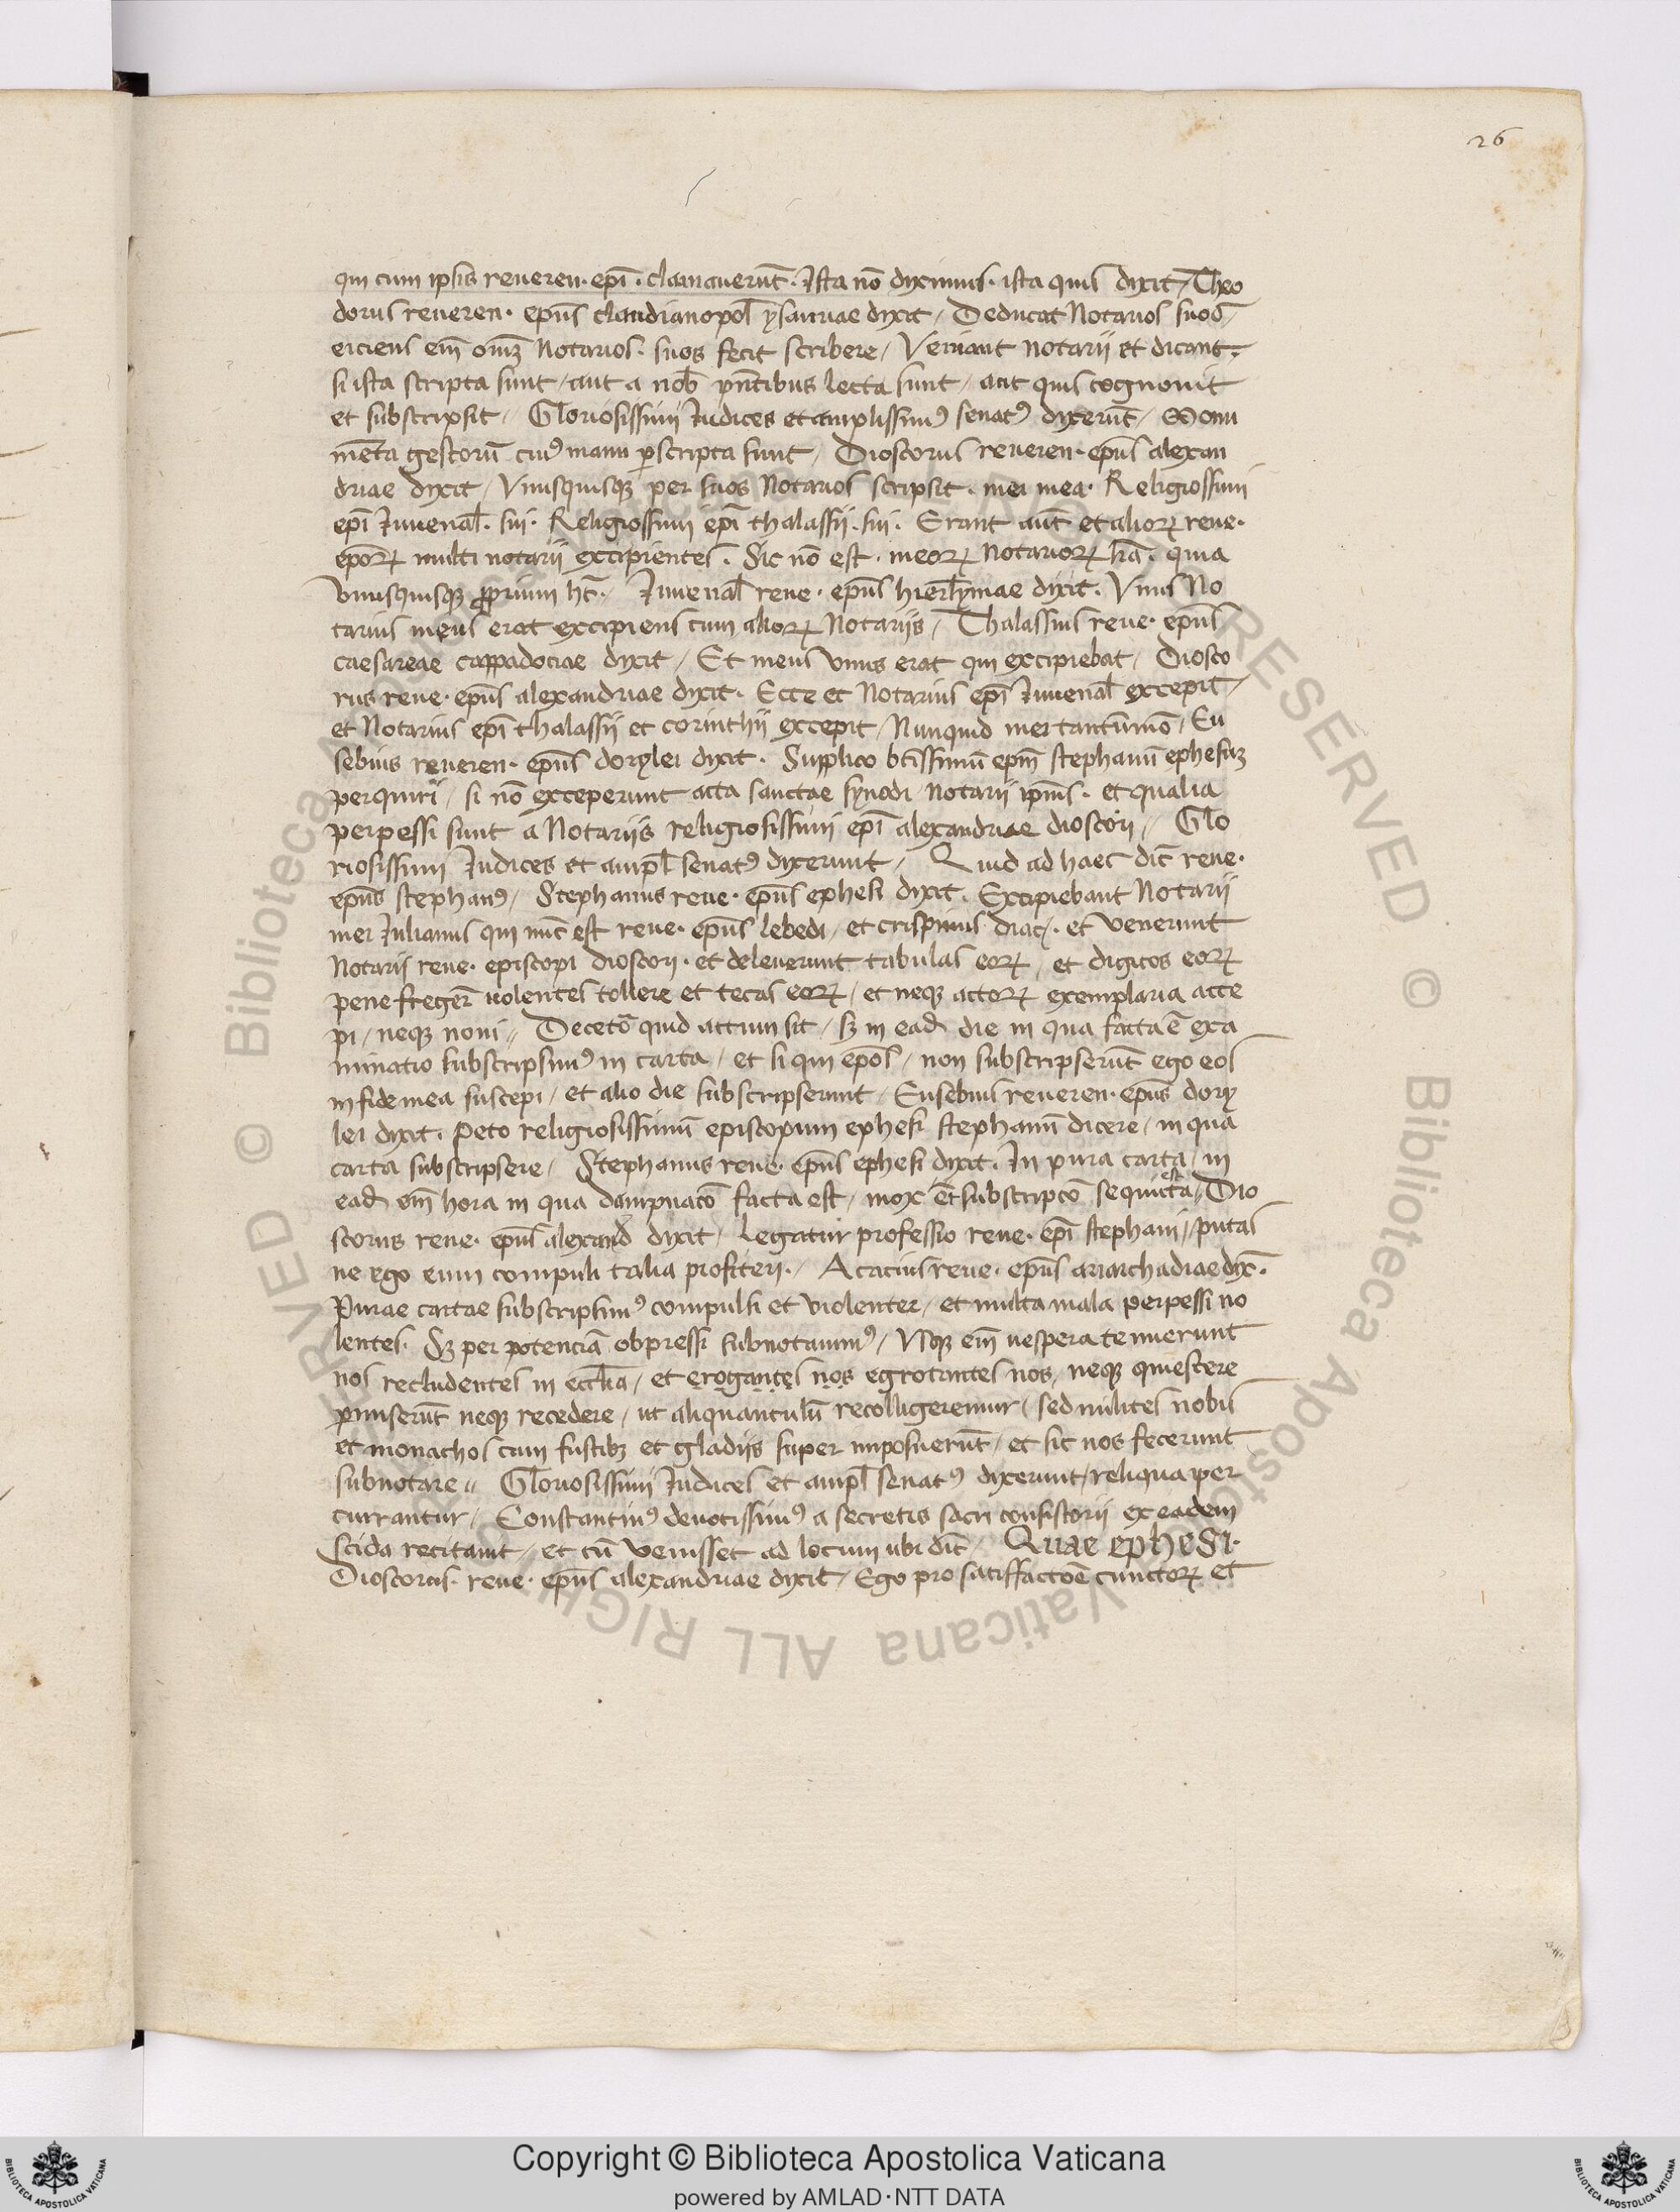 26
qui cum ipsis reueren. epi̅. clamauerūt. Ista nō diximus. ista quis dixit/ Theo
dorus reueren. epūs claudianopol̅ ysauriae dixit/ Deducat Notarios suos/
eiciens em̅ omẜ Notarios. suos fecit scribere/ Veniant notarii et dicant.
si ista scripta sunt/ aut a nob̅ pn̅tibus lecta sunt/ aut quis cognouit
et subscripsit/ Gloriosissimi Iudices et amplissimꝰ senatꝰ dixerūt/ Monu
mēta gestorū cuiꝰ manu ꝑscripta sunt/ Dioscorus reueren. epūs alexan
driae dixit/ Vnusquisqꝫ per suos Notarios scripsit. mei mea. Religiossimi
epi̅ Iuuenal̅. sui. Religiossimi epi̅ thalassii. sui. Erant aūt et alioꝝ reue.
epōꝝ multi notarii excipientes. Sic nō est. meoꝝ Notarioꝝ l̅ra. quia
Vnusquisqꝫ ꝓprium ht̅. Iuuenal̅ reue. epūs hierl̅ymae dixit. Vnus No
tarius meus erat excipiens cum alioꝝ Notariis/ Thalassius reue. epūs
caesareae cappadociae dixit/ Et meus vnus erat qui excipiebat/ Diosco
rus reue. epūs alexandriae dixit. Ecce et Notarius epi̅ Iuuenal̅ excepit/
et Notarius epi̅ thalassii et corinthii excepit/ Nunquid mei tantūmō/ Eu
sebius reueren. epūs dorylei dixit. Supplico bt̅issimū epm̅ stephanū ephesuꝫ
perquiri/ si nō exceperunt acta sanctae synodi notarii ipiūs. et qualia
perpessi sunt a Notariis religiosissimi epi̅ alexandriae dioscori// Glo
riosissimi Iudices et ampl̅ senatꝰ dixerunt/ Quid ad haec dic̅ reue.
epūs stephanꝰ/ Stephanus reue. epūs ephesi dixit. Excipiebant Notarii
mei Iulianus qui nūc est reue. epūs lebedi/ et crispinus diac̅. et venerunt
Notarii reue. episcopi dioscori. et deleuerunt tabulas eoꝝ/ et digitos eoꝝ
pene fregeꝝ uolentes tollere et tecas eoꝝ/ et neqꝫ actoꝝ exemplaria acce
pi/ neqꝫ noui// Decetō quid actum sit/ sꝫ in ead̅ die in qua facta ē exa
minatio subscripsimꝰ in carta/ et si qui epōs/ non subscripserūt ego eos
in fide mea suscepi/ et alio die subscripserunt/ Eusebius reueren. epūs dory
lei dixit. Peto religiosissimū episcopum ephesi stephanū dicere/ in qua
carta subscripsere/ Stephanus reue. epūs ephesi dixit. In pura carta/ in
ead̅ em̅ hora in qua dampnatō facta est/ mox et subscripcō sequuta est// Dio
scorus reue. epūs alexand̅ dixit/ Legatur professio reue. epi̅ stephani// putas
ne ego eum compuli talia profiteri./ Acacius reue. epūs ariarchadiae dix̅.
Purae cartae subscripsimꝰ compulsi et violenter/ et multa mala perpessi no
lentes. Sꝫ per potenciā obpressi subnotauimꝰ/ Vsqꝫ em̅ uespera tenuerunt
nos recludentes in eccl̅ia/ et erogantes nos egrotantes nos/ neqꝫ quiescere
ꝑmiserūt neqꝫ recedere/ ut aliquantulū recolligeremur/ sed milites nobis
et monachos cum fustibꝫ et gladiis super imposuerūt/ et sic nos fecerunt
subnotare// Gloriosissimi Iudices et ampl̅ senatꝰ dixerunt/ reliqua per
currantur/ Constantinꝰ deuotissimꝰ a secretis sacri consistorii ex eadem
scida recitauit/ et cū venisset ad locum ubi dic̅/ Quae ephesi.
Dioscorus. reue. epūs alexandriae dixit/ Ego pro satisfactoē cunctoꝝ et
© Biblioteca Apostolica Vaticana ALL RIGHTS RESERVED
© Biblioteca Apostolica Vaticana ALL RIGHTS RESERVED
Copyright © Biblioteca Apostolica Vaticana
powered by AMLAD·NTT DATA
BIBLIOTECA APOSTOLICA VATICANA
BIBLIOTECA APOSTOLICA VATICANA